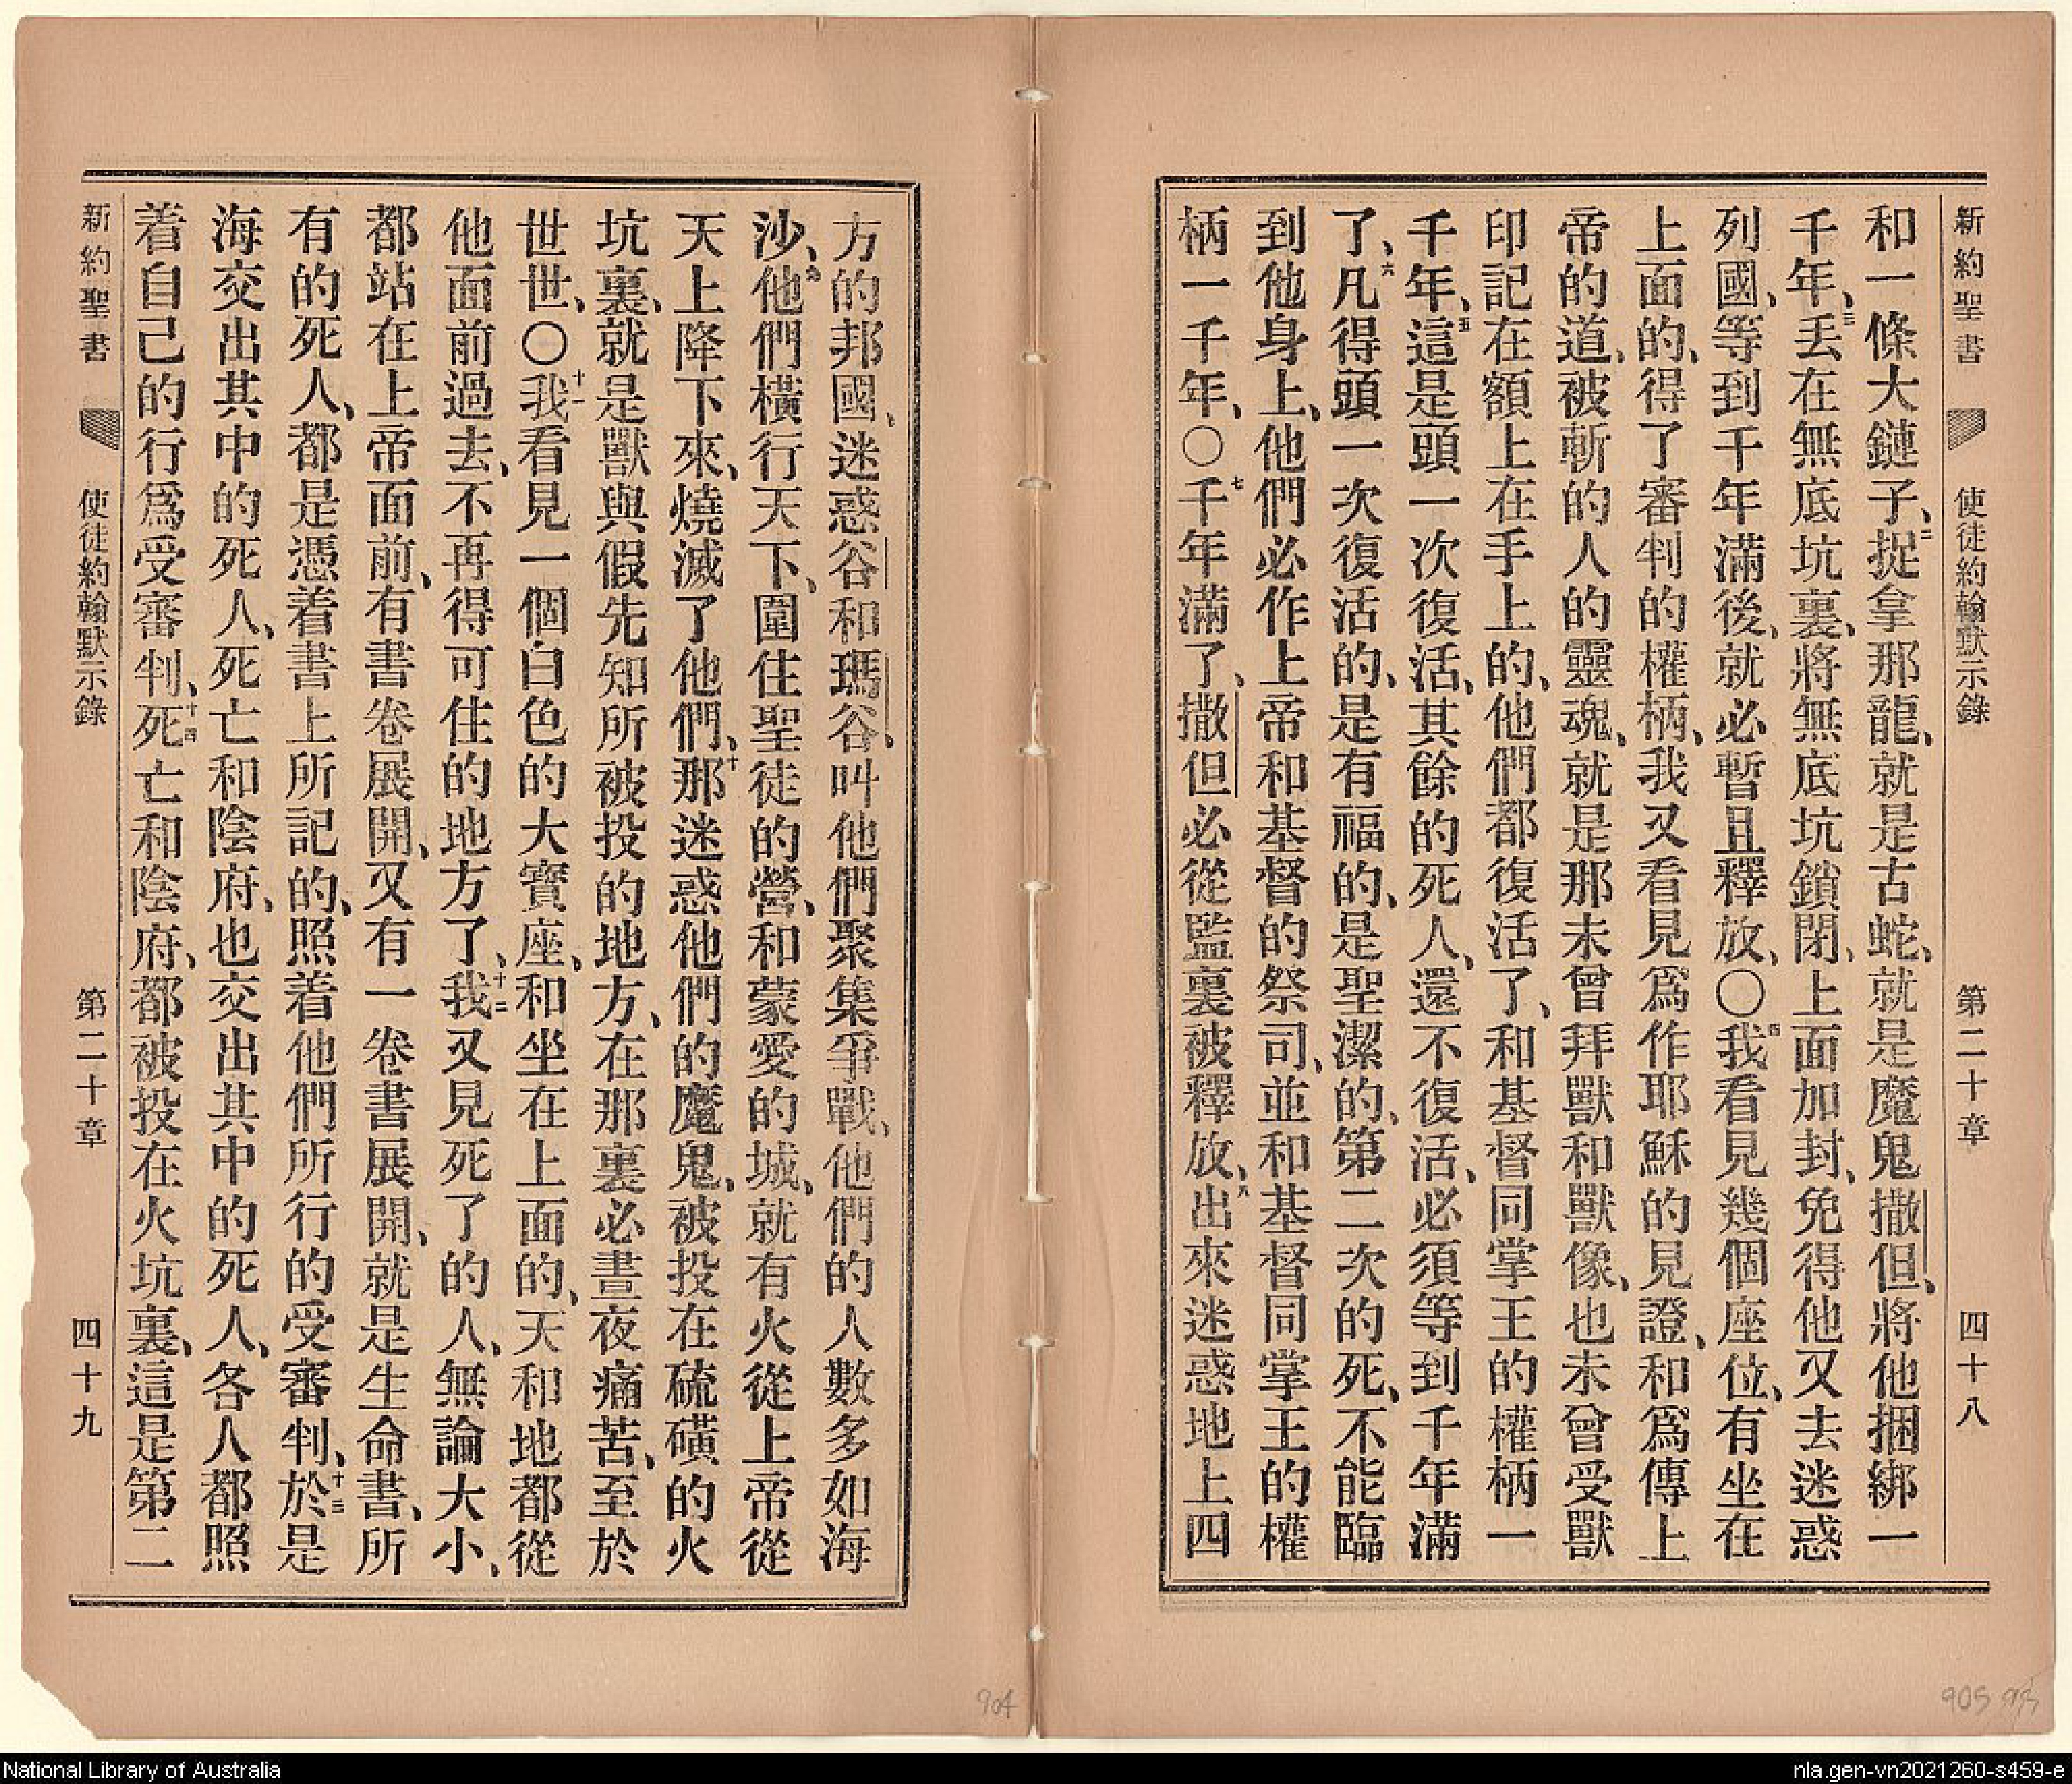 新約聖書 使徒約翰默示錄 第二十章 四十八
和一條大鏈子、二捉拿那龍、就是古蛇、就是魔鬼撒但、將他捆綁一
千年、三丟在無底坑裏、將無底坑鎖閉、上面加封、免得他又去迷惑
列國、等到千年滿後、就必暫且釋放、〇四我看見幾個座位、有坐在
上面的、得了審判的權柄、我又看見爲作耶穌的見證、和爲傳上
帝的道、被斬的人的靈魂、就是那未曾拜獸和獸像、也未曾受獸
印記在額上在手上的、他們都復活了、和基督同掌王的權柄一
千年、五這是頭一次復活、其餘的死人、還不復活、必須等到千年滿
了、六凡得頭一次復活的、是有福的、是聖潔的、第二次的死、不能臨
到他身上、他們必作上帝和基督的祭司、並和基督同掌王的權
柄一千年、〇七千年滿了、撒但必從監裏被釋放、八出來迷惑地上四
方的邦國、迷惑谷和瑪谷、叫他們聚集爭戰、他們的人數多如海
沙、九他們橫行天下、圍住聖徒的營、和蒙愛的城、就有火從上帝從
天上降下來、燒滅了他們、十那迷惑他們的魔鬼、被投在硫磺的火
坑裏、就是獸與假先知所被投的地方、在那裏必晝夜痛苦、至於
世世、〇十一我看見一個白色的大寶座、和坐在上面的、天和地都從
他面前過去、不再得可住的地方了、十二我又見死了的人、無論大小、
都站在上帝面前、有書卷展開、又有一卷書展開、就是生命書、所
有的死人、都是憑着書上所記的、照着他們所行的受審判、十三於是
海交出其中的死人、死亡和陰府、也交出其中的死人、各人都照
着自己的行爲受審判、十四死亡和陰府、都被投在火坑裏、這是第二
新約聖書 使徒約翰默示錄 第二十章 四十九
904
905
National Library of Australia
nla.gen-vn2021260-s459-e